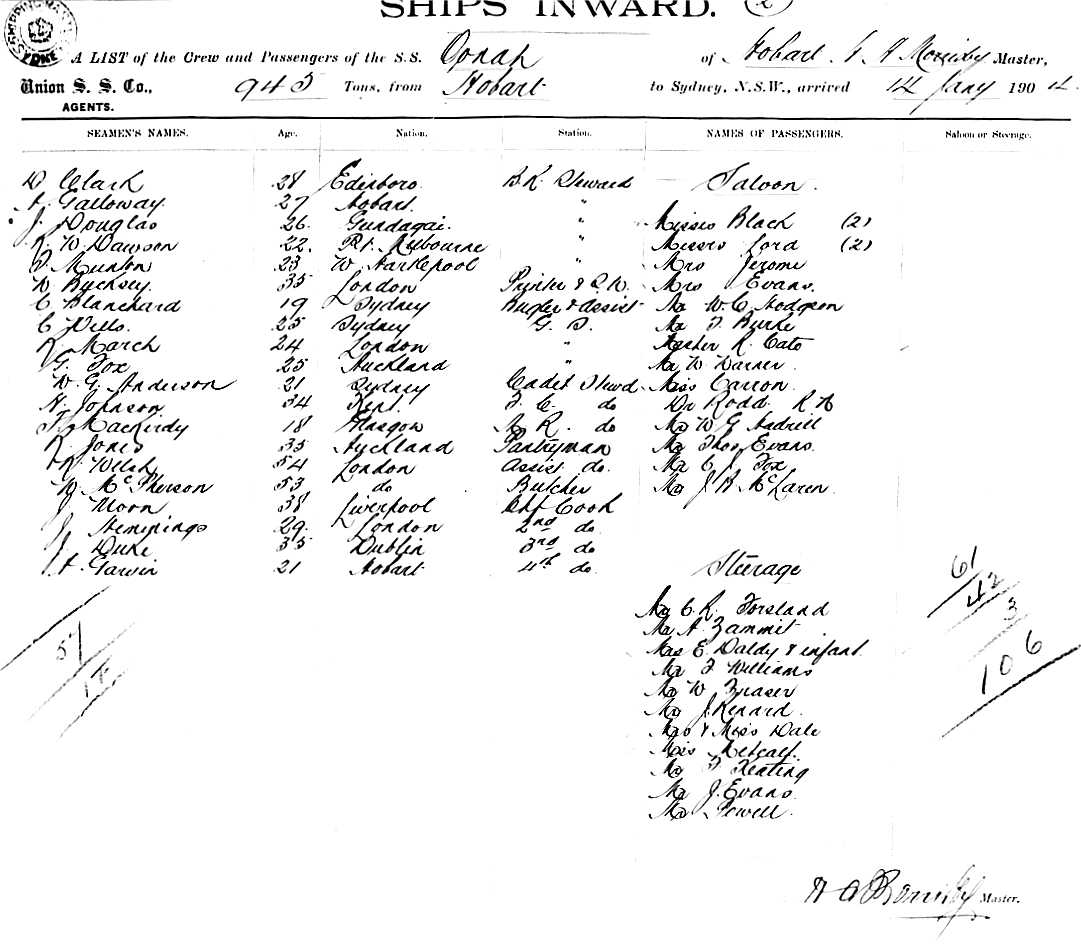 SHIPS INWARD. (2)
A LIST of the Crew and Passengers of the S.S. Oonah of Hobart, Master,
Union S. S. Co., 945 Tons, from Hobart to Sydney, N.S.W., arrived 14 Jany 1904
AGENTS.
SEAMEN'S NAMES. Age. Nation. Station. NAMES OF PASSENGERS. Saloon or Steerage.
D Clark 28 Edinboro. B.R. Steward Saloon.
A. Galloway 27 Hobart. "
J. Douglas 26. Gundagai. " Misses Black (2)
R. W. Dawson 22. Pt. Melbourne " Misses Lord (2)
T. Munton 23 W. Hartlepool " Mrs Jerome
W. Bucksey. 35 London Printer & Mrs Evans.
C Blanchard 19 Sydney Bugler & assist Mr W. C. Hodgson
C Wells. 25 Sydney G. S. Mr T. Burke
R. March 24 London " Master R. Cato
G. Fox 25 Auckland " Mr W Warner
W. G. Anderson 21 Sydney Cadet Stewd Miss Carron.
H. Johnson 34 Kent. F. C. do Dr Rodd. R N
18 Glasgow S. R. do Mr W G
R. Jones 35 Auckland Pantryman Mr Thos Evans.
Welsh 54 London Assist do. Mr C Fox
W. McPherson 53 do Butcher Mr J. B. McLaren.
J Moon 38 Liverpool Chf Cook
J. Hemmings 29. London 2nd do
J Duke 35 Dublin 3rd do
A. Garwin 21 Hobart 4th do. Steerage
Mr C. R. Forsland
Mr A. Zammit
Mrs E. Daldy & infant.
Mr F Williams
Mr W. Fraser
Mr J. Renard.
Mrs & Miss Dale
Miss Metcalf.
Mr T Keating
Mr J. Evans
Mr Sewell.
61
42
3
106
51
Master.